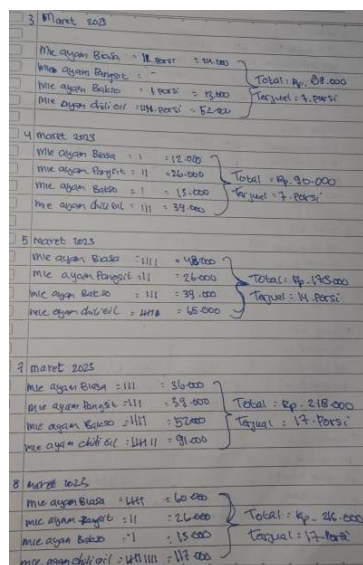 3 Maret 2023
mie ayam Biasa = II Porsi = 24.000
mie ayam Pangsit = -
mie ayam Bakso = 1 Porsi = 13.000
mie ayam chili oil = IIII Porsi = 52.000
Total = Rp. 89.000
Terjual = 7. Porsi
4 maret 2023
mie ayam Biasa = I = 12.000
mie ayam Pangsit = II = 26.000
mie ayam Bakso = I = 13.000
mie ayam chili oil = III = 39.000
Total = Rp. 90.000
Terjual = 7. Porsi
5 maret 2023
mie ayam Biasa = IIII = 48.000
mie ayam Pangsit = II = 26.000
mie ayam Bakso = III = 39.000
mie ayam chili oil = IIIII = 65.000
Total = Rp. 178.000
Terjual = 14. Porsi
7 maret 2023
mie ayam Biasa = III = 36.000
mie ayam Pangsit = III = 39.000
mie ayam Bakso = IIII = 52.000
mie ayam chili oil = IIIII II = 91.000
Total = Rp. 218.000
Terjual = 17. Porsi
8 maret 2023
mie ayam Biasa = IIIII = 60.000
mie ayam Pangsit = II = 26.000
mie ayam Bakso = I = 13.000
mie ayam chili oil = IIIII IIII = 117.000
Total = Rp. 216.000
Terjual = 17. Porsi